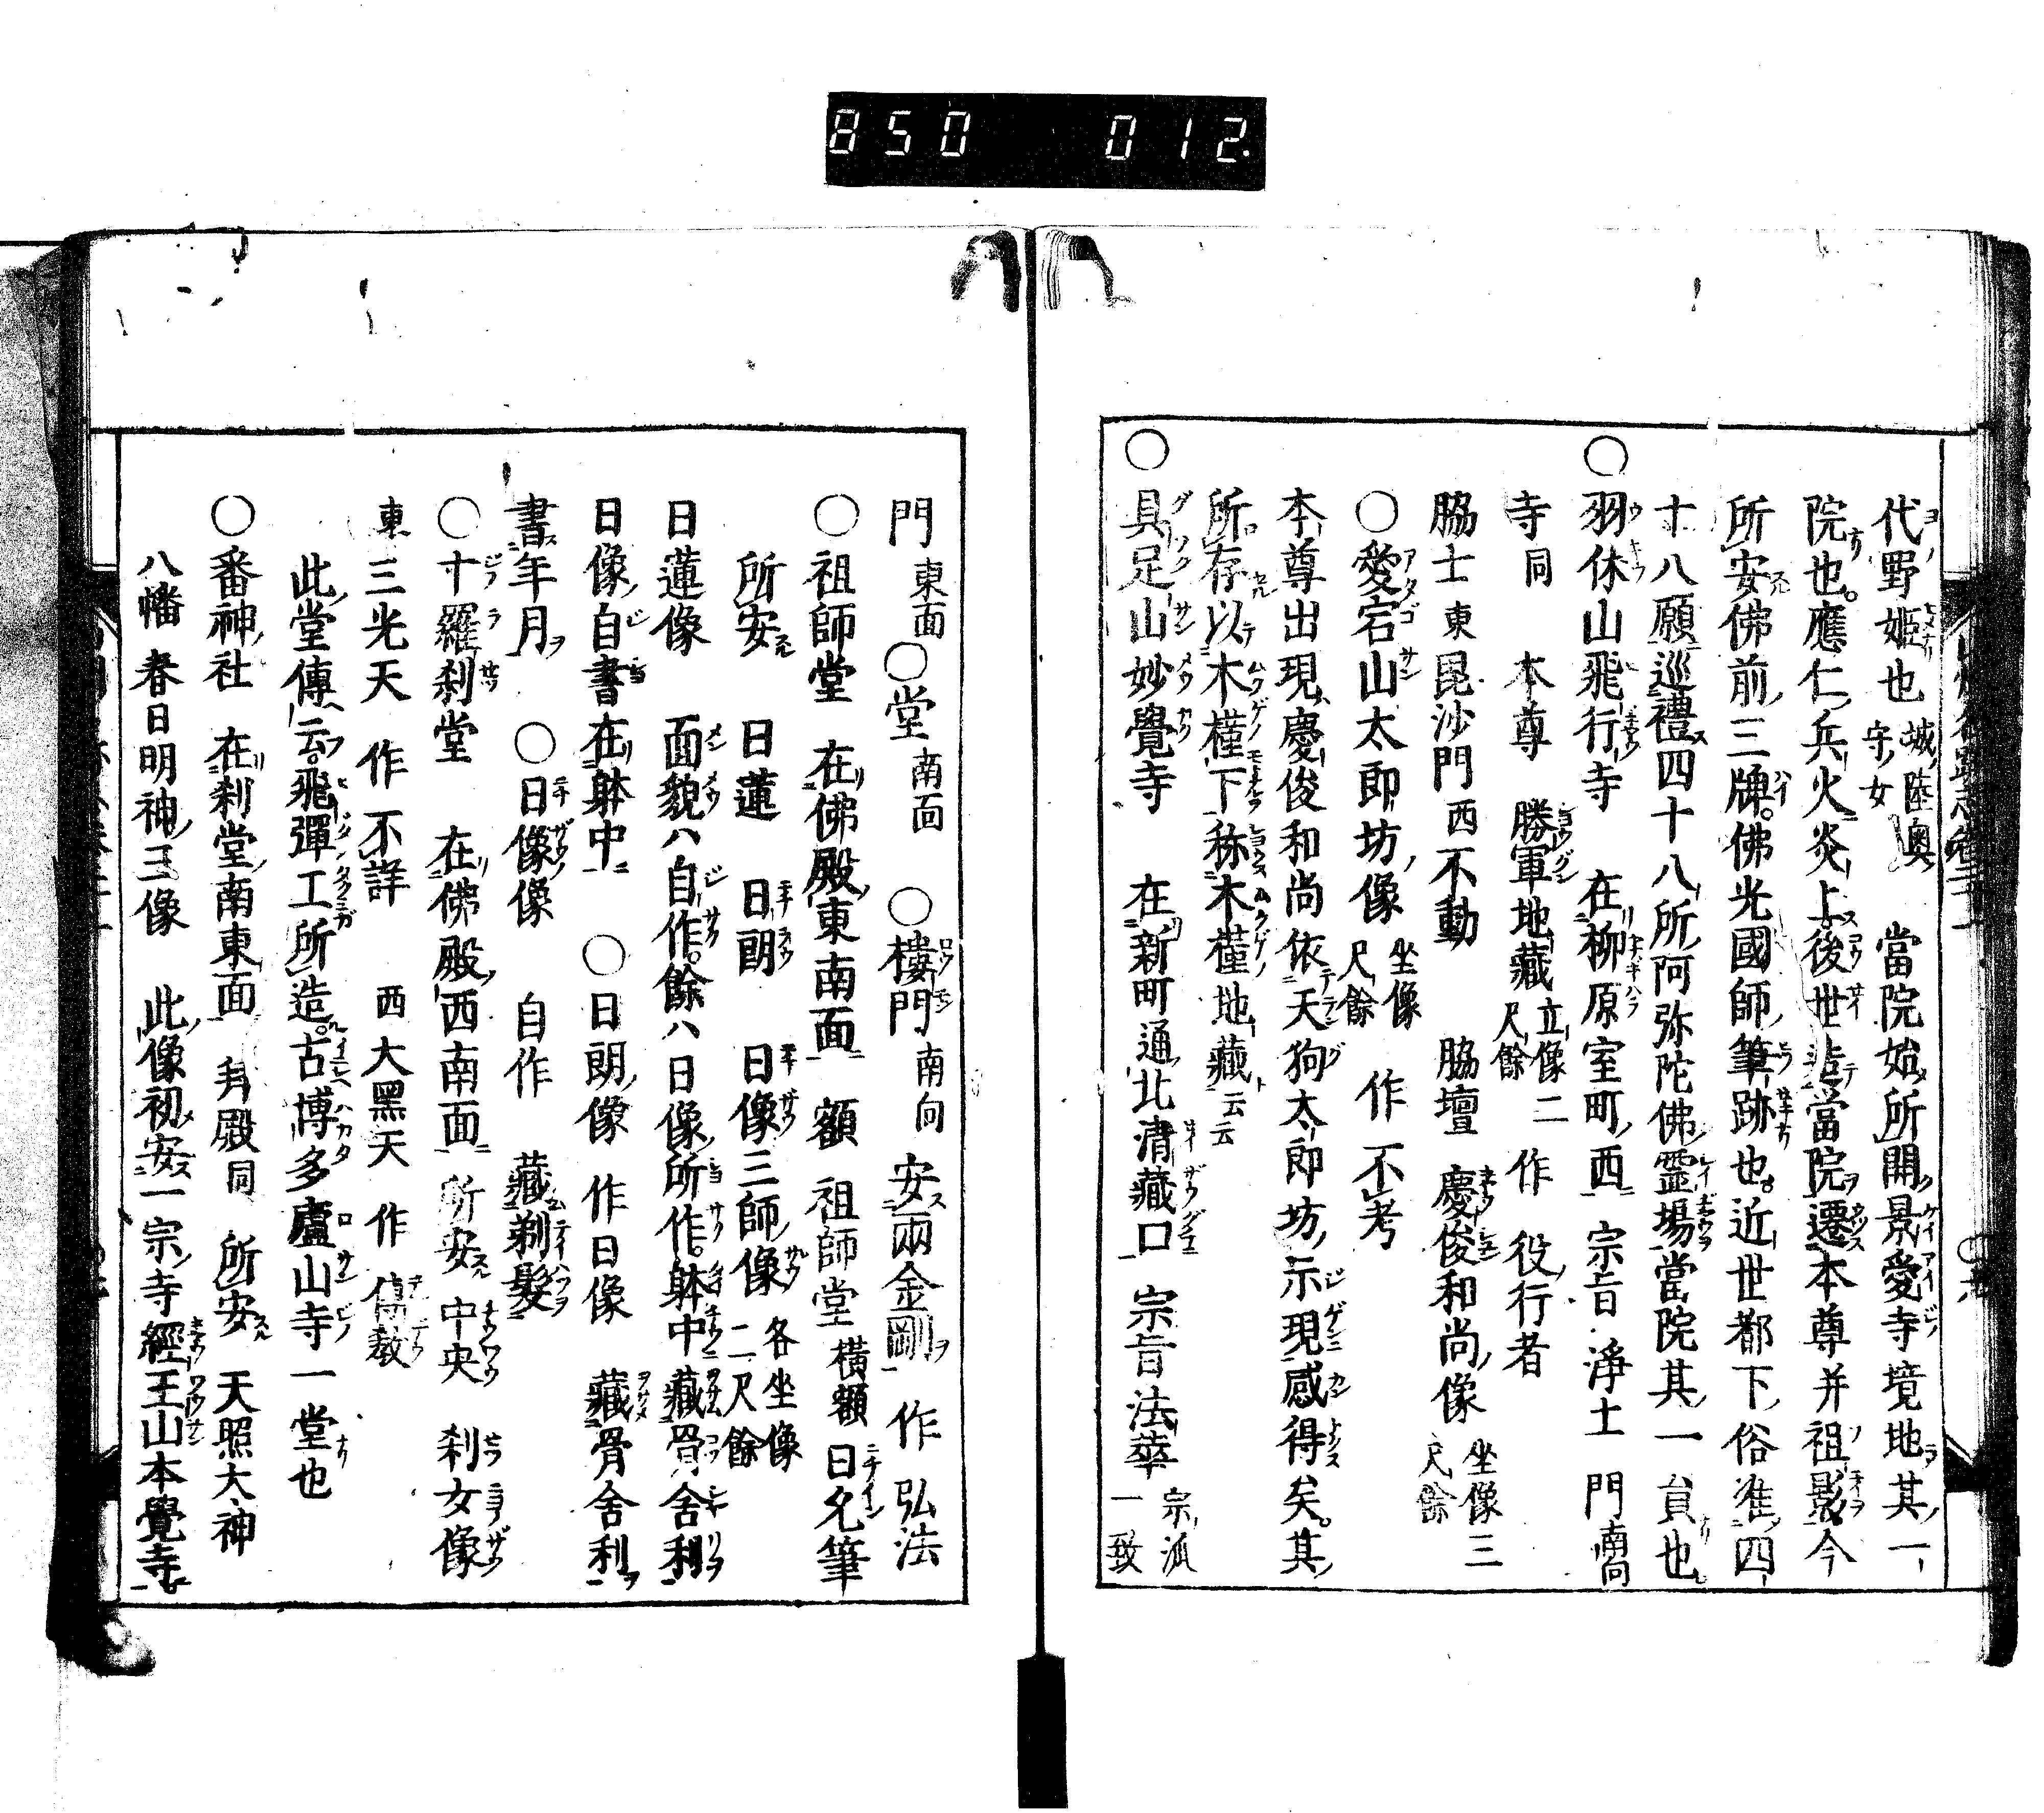 850 012.
代野姫也城陸奥守女 當院始所開景愛寺境地其一
院也應仁兵火炎上後世當院遷本尊并祖影今
所安佛前三牌佛光國師筆跡也近世都下俗准四
十八願巡禮四十八所阿弥陀佛霊場當院其一員也
○羽休山飛行寺 在柳原室町西 宗旨浄土 門南向
寺同 本尊 勝軍地藏立像二尺餘 作役行者
脇士東毘沙門西不動 脇壇 慶俊和尚像坐像三尺餘
○愛宕山太郎坊像坐像尺餘 作不考
本尊出現慶俊和尚依天狗太郎坊示現感得矣其
所存以木槿下称木槿地藏云云
○具足山妙覺寺 在新町通北清藏口 宗旨法華宗派一致
門東面 ○堂南面 ○樓門南向 安兩金剛 作弘法
○祖師堂 在佛殿東南面 額 祖師堂横額 日允筆
所安 日蓮 日朗 日像三師像各坐像二尺餘
日蓮像 面貌ハ自作餘ハ日像所作躰中藏骨舍利
日像自書在躰中 ○日朗像 作日像 藏骨舍利
書年月 ○日像像 自作 藏剃髮
○十羅刹堂 在佛殿西南面 所安 中央 刹女像
東三光天 作不詳 西大黑天 作傳教
此堂傳云飛彈工所造古博多盧山寺一堂也
○番神社 在刹堂南東面 拜殿同 所安 天照大神
八幡 春日明神三像 此像初安一宗寺經王山本覺寺